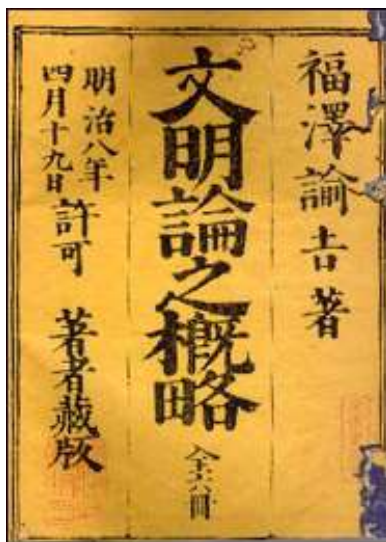 福澤諭吉著
文明論之概略
全六冊
明治八年
四月十九日許可
著者藏版